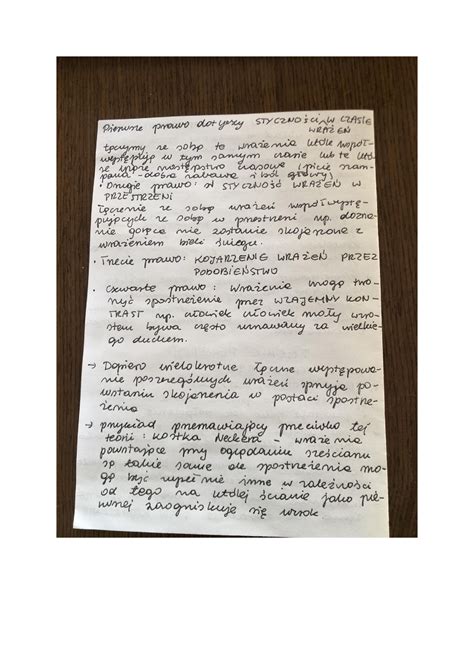 Pierwsze prawo dotyczy STYCZNOŚCI W CZASIE
WRAŻEŃ
łączymy ze sobą te wrażenia które współ-
występują w tym samym czasie lub te któ
re następstwo czasowe (picie szam-
pana - dobra zabawa i ból głowy)
• Drugie prawo: STYCZNOŚĆ WRAŻEŃ W
PRZESTRZENI
Łączenie ze sobą wrażeń współwystę-
pujących ze sobą w przestrzeni np. dozna-
nie gorąca nie zostanie skojarzone z
wrażeniem bieli śniegu.
• Trzecie prawo: KOJARZENIE WRAŻEŃ PRZEZ
PODOBIEŃSTWO
• Czwarte prawo: Wrażenia mogą two-
rzyć spostrzeżenie przez WZAJEMNY KON-
TRAST np. człowiek człowiek mały wzro-
stem bywa często uznawany za wielkie-
go duchem.
→ Dopiero wielokrotne łączne występowa-
nie poszczególnych wrażeń sprzyja po-
wstaniu skojarzenia w postaci spostrze-
żenia
→ przykład przemawiający przeciwko tej
teorii: kostka Neckera - wrażenia
powstające przy oglądaniu sześcianu
są takie same ale spostrzeżenia mo-
gą być zupełnie inne w zależności
od tego na której ścianie jako pie-
rwszej zaogniskuje się wzrok